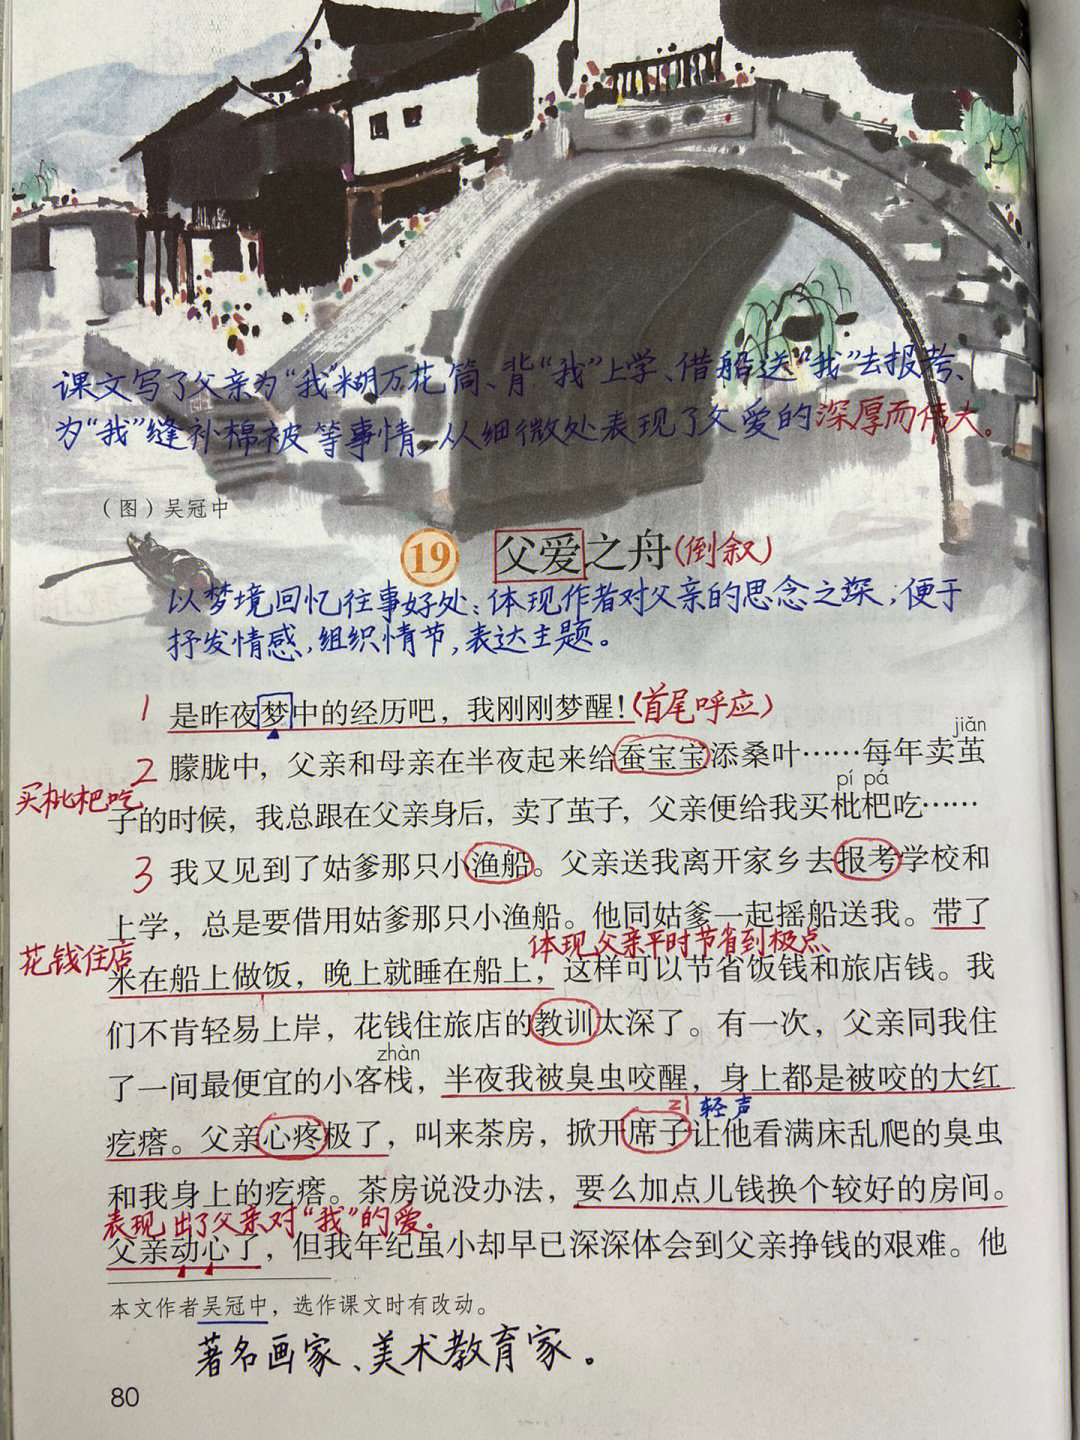 课文写了父亲为“我”糊万花筒、背“我”上学、借船送“我”去报考、
为“我”缝补棉被等事情,从细微处表现了父爱的深厚而伟大。
（图）吴冠中
19 父爱之舟(倒叙)
以梦境回忆往事好处:体现作者对父亲的思念之深,便于
抒发情感,组织情节,表达主题。
1 是昨夜梦中的经历吧，我刚刚梦醒！(首尾呼应)
jiǎn
2 朦胧中，父亲和母亲在半夜起来给蚕宝宝添桑叶……每年卖茧
pí pá
买枇杷吃
子的时候，我总跟在父亲身后，卖了茧子，父亲便给我买枇杷吃……
3 我又见到了姑爹那只小渔船。父亲送我离开家乡去报考学校和
上学，总是要借用姑爹那只小渔船。他同姑爹一起摇船送我。带了
花钱住店
体现父亲平时节省到极点
米在船上做饭，晚上就睡在船上，这样可以节省饭钱和旅店钱。我
们不肯轻易上岸，花钱住旅店的教训太深了。有一次，父亲同我住
zhàn
了一间最便宜的小客栈，半夜我被臭虫咬醒，身上都是被咬的大红
zi 轻声
疙瘩。父亲心疼极了，叫来茶房，掀开席子让他看满床乱爬的臭虫
和我身上的疙瘩。茶房说没办法，要么加点儿钱换个较好的房间。
表现出了父亲对“我”的爱.
父亲动心了，但我年纪虽小却早已深深体会到父亲挣钱的艰难。他
本文作者吴冠中，选作课文时有改动。
著名画家、美术教育家。
80